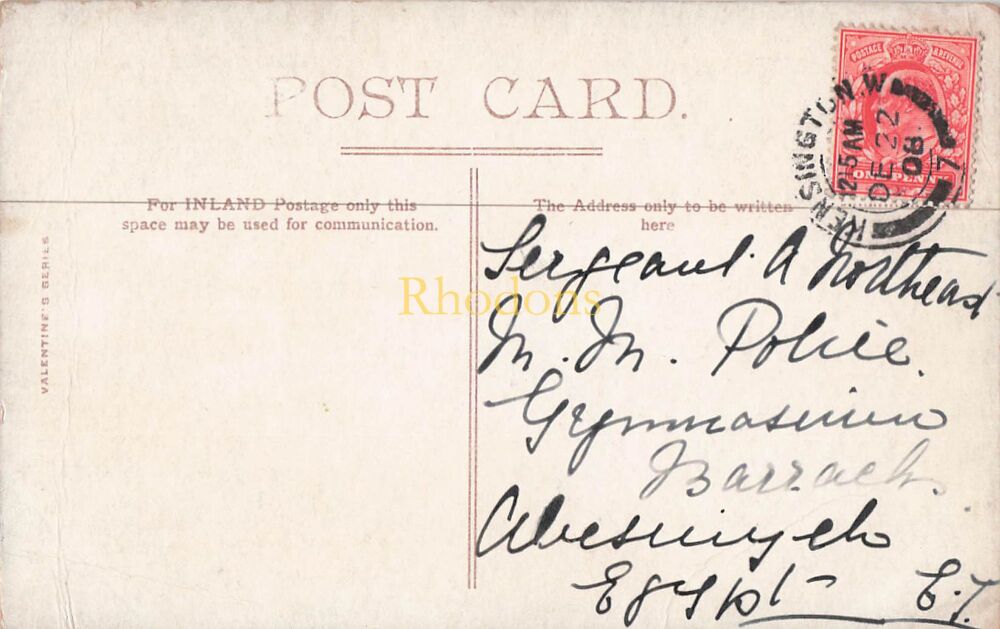 POST CARD.
POSTAGE & REVENUE
ONE PENNY
KENSINGTON.W
12 15 AM
DE 22
08
7
For INLAND Postage only this
space may be used for communication.
The Address only to be written
here
VALENTINE'S SERIES
Sergeant. A Northead
M. M. Police.
Gymnasium
Barrack.
Egypt E.
Rhodons